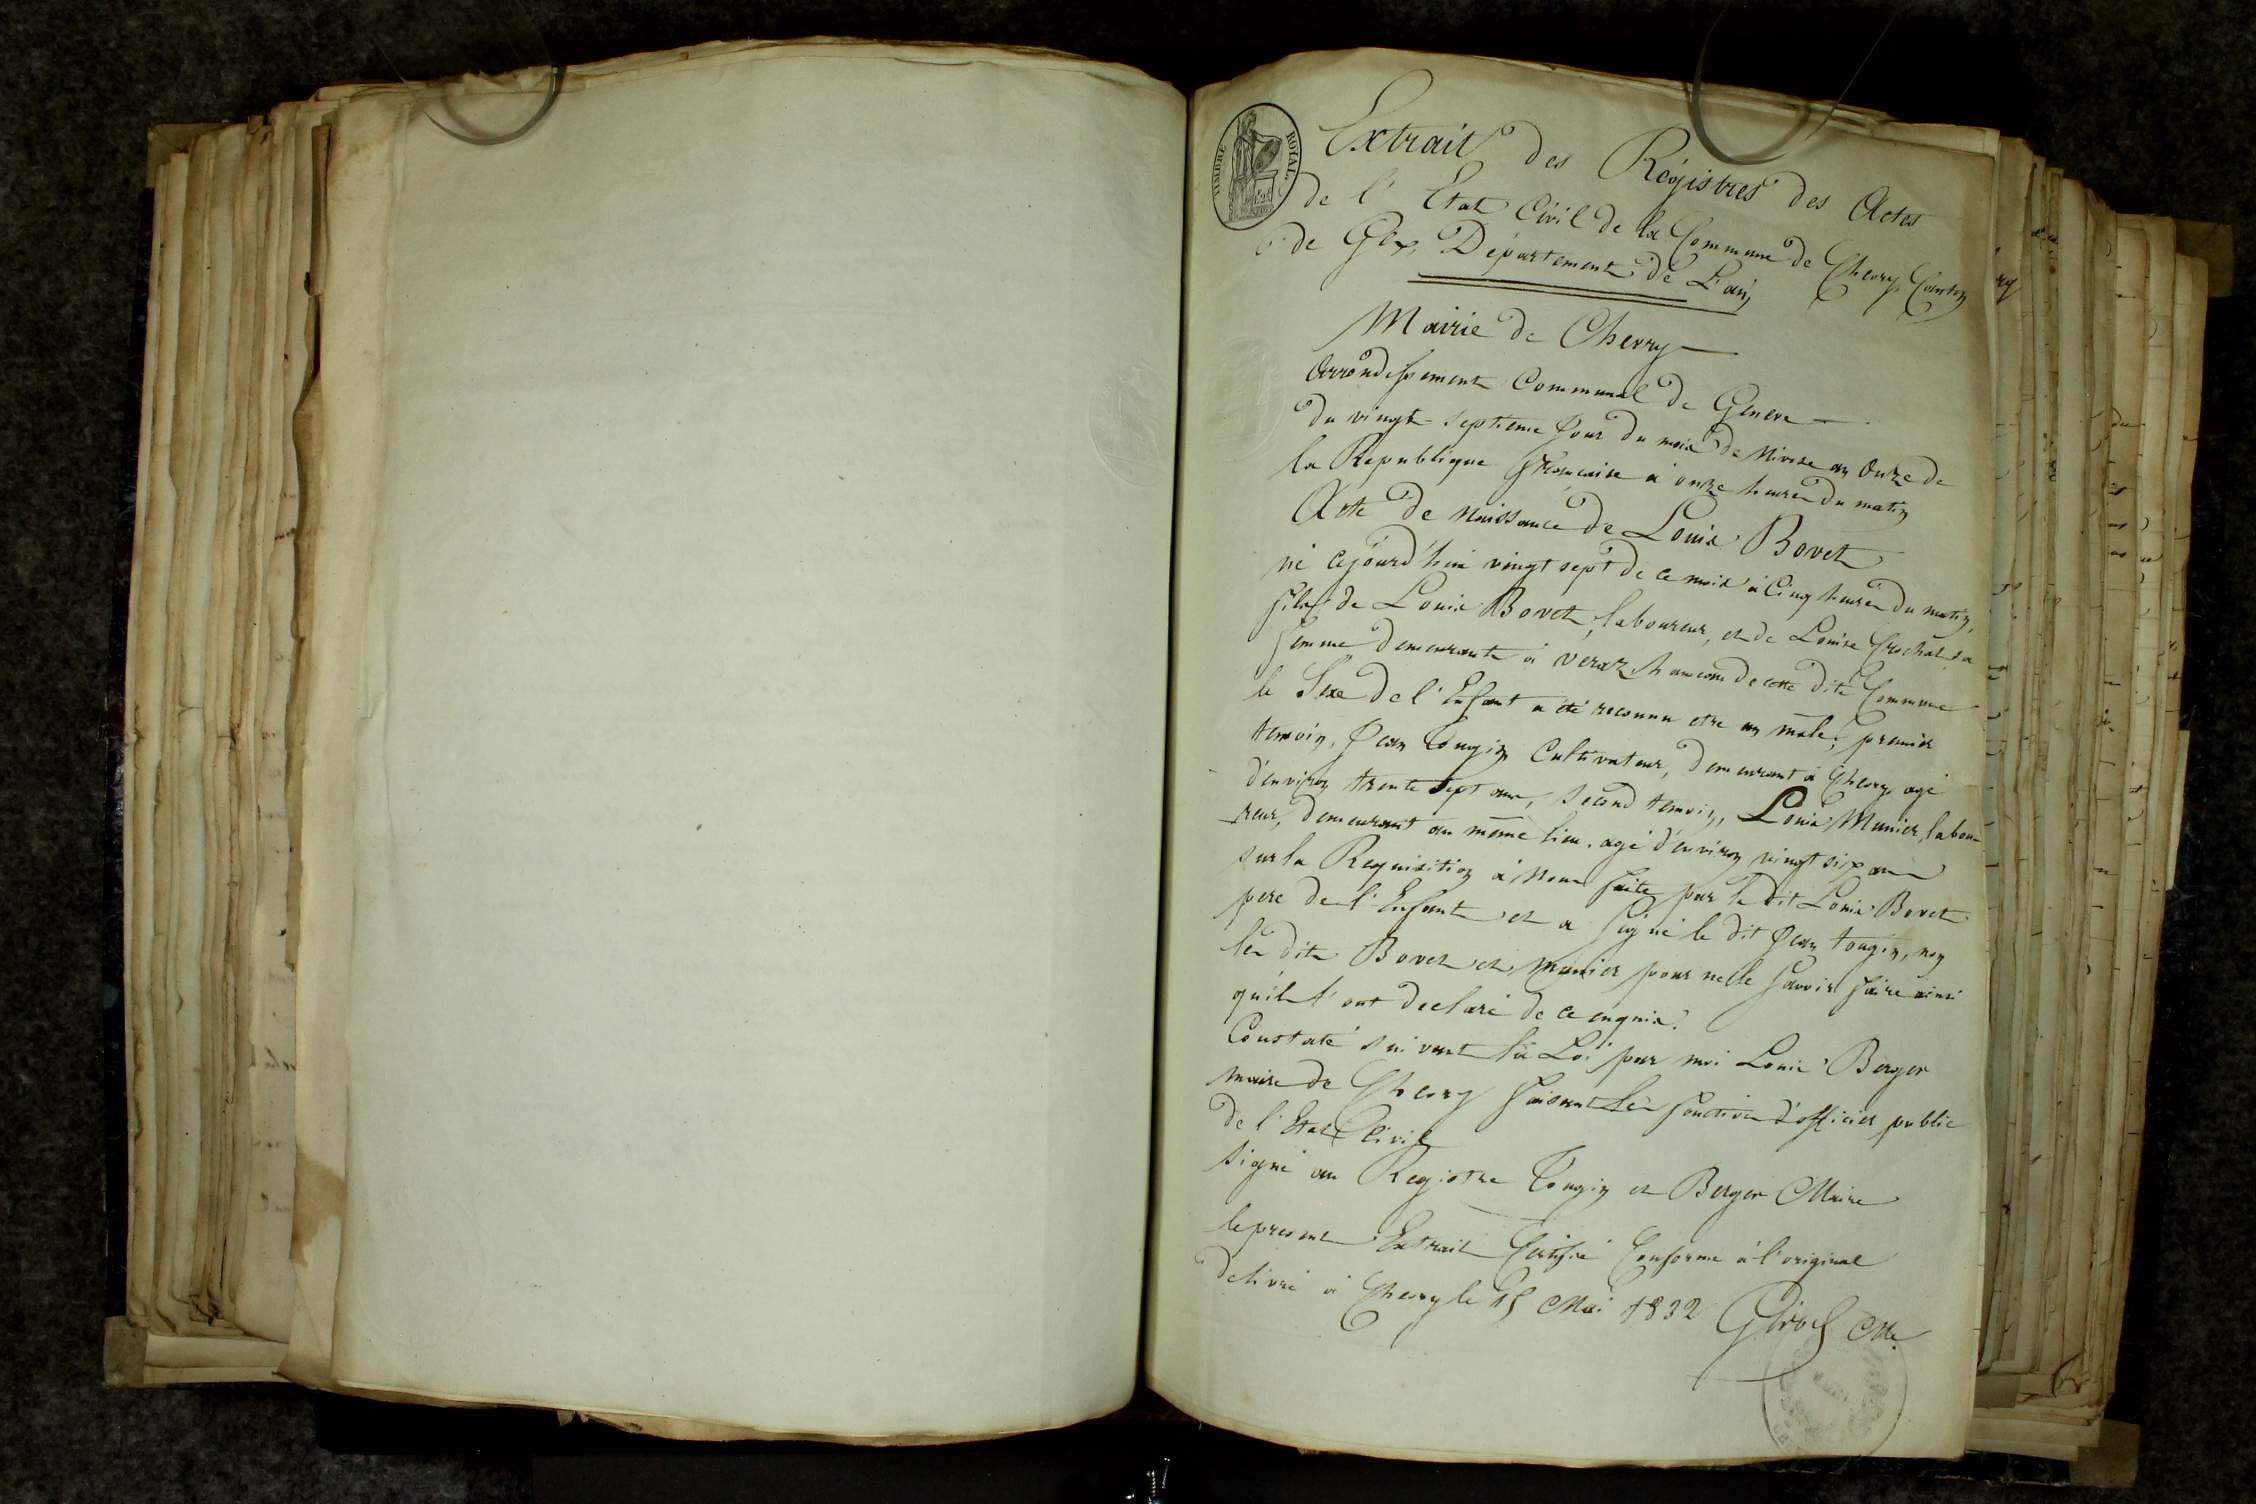 TIMBRE ROYAL
Extrait des Régistres des Actes
de l'Etat Civil de la Commune de Chevry Canton
de Gex, Département de L'ain
Mairie de Chevry
Arrondissement Communal de Geneve
du vingt-septieme Jour du mois de Nivose an Onze de
la Republique Française à onze heures du matin
Acte de Naissance de Louis Bovet
né cejourd'hui vingt sept de ce mois à Cinq heures du matin,
fils de Louis Bovet, laboureur, et de Louise Crochat sa
femme demeurante à veraz hameau de cette dite Commune
le Sexe de l'Enfant a été reconnu etre un mâle, premier
temoin, Jean Tougin Cultivateur, demeurant à Chevry agé
d'environ trente sept ans, second temoin, Louis Munier, labou-
reur, demeurant au même lieu, agé d'environ vingt six ans
sur la Requisition à Nous faite par le dit Louis Bovet
pere de l'Enfant et a signé le dit Jean tougin, non
les dits Bovet et Munier pour ne le savoir faire ainsi
qu'ils l'ont declaré de ce enquis.
Constaté suivant la Loi par moi Louis Berger
maire de Chevry faisant les fonctions d'officier public
de l'Etat Civil
Signé au Registre Tougin et Berger Maire
le present Extrait Certifié Conforme à l'original
delivré à Chevry le 15 Mai 1832